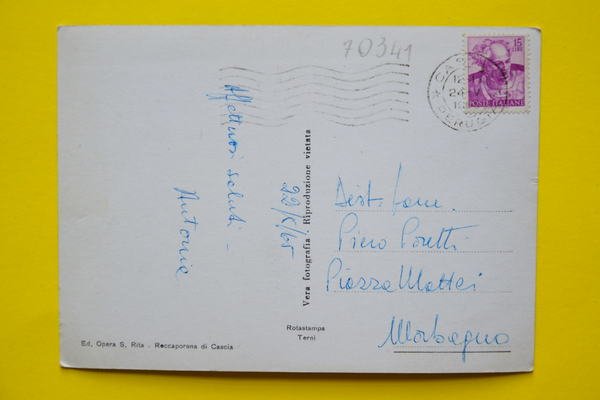 70341
15
LIRE
POSTE ITALIANE
Affettuosi saluti -
Antonia
22/8/65
Vera fotografia - Riproduzione vietata
Dist. fam.
Piero Poretti
Piazza Mattei
Morbegno
Rotastampa
Terni
Ed. Opera S. Rita - Roccaporena di Cascia